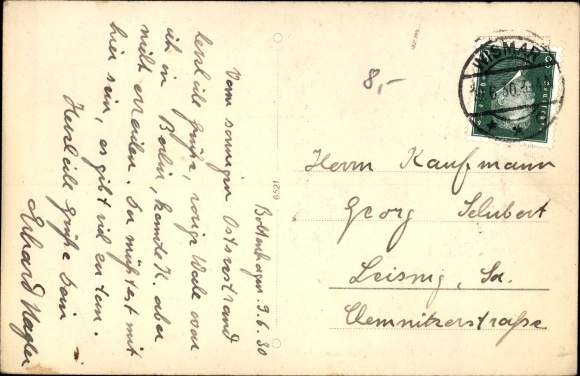 Boltenhagen 9.6.30
Vom sonnigen Ostseestrand
herzliche Grüße, vorige Woche war
ich in Berlin, konnte K. aber
nicht erreichen. Du müßtest mit
hier sein, es gibt viel zu tun.
Herzliche Grüße Dein
Erhard Nagler
6521
8,-
WISMAR
6.30.
Herrn Kaufmann
Georg Schubert
Leisnig, Sa.
Chemnitzerstraße